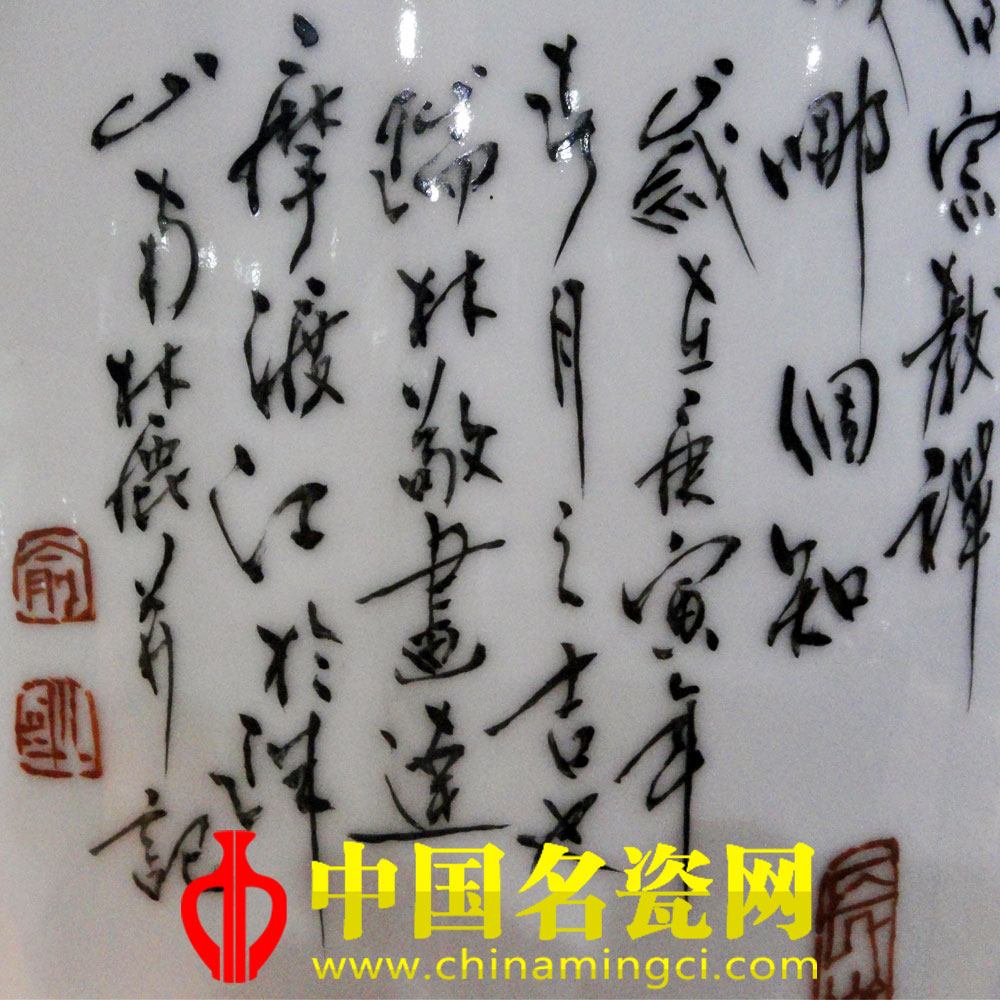 宗教禅
哪個知
歲在庚寅年
春月之吉
林敬畫達
摩渡江於珠
山南林麓并記
中国名瓷网
www.chinamingci.com